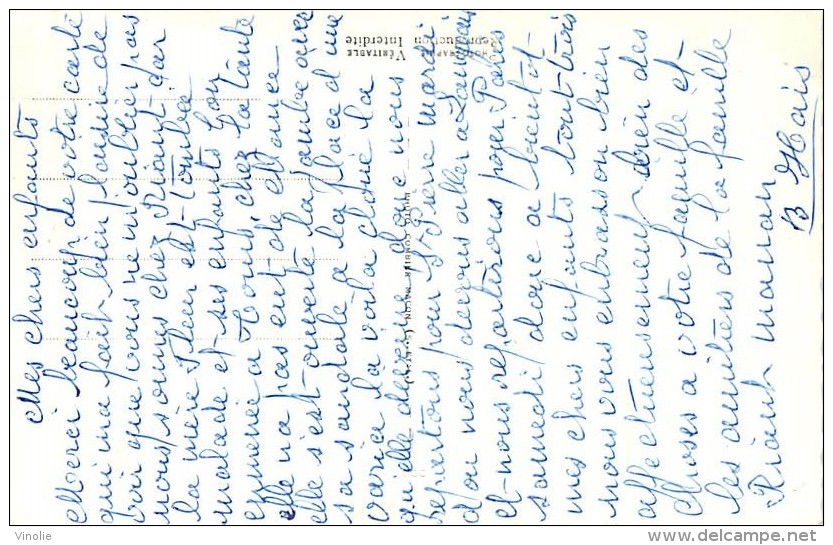 Mes chers enfants
Merci beaucoup de votre carte
qui ma fait bien plaisir de
voir que vous ne m'oublier pas
nous sommes chez Riant car
la mère Fleur est tombée
malade et ses enfants lon
emmené a Tours, chez la tante
elle n'a pas eut de chance
elle s'est ouverte la jambe avec
sa sandale a la place d'une
varice la voila cloué la
qu elle deveine donc nous
repartons pour St Pierre mardi
d'ou nous devons aller a
et nous repartirons pour Paris
samedi donc a bientot
mes chers enfants tout trois
nous vous embrassons bien
affectueusement bien des
choses a votre famille et
les amitiers de la famille
Riant maman
B Hais
VÉRITABLE
PHOTOGRAPHIE
Reproduction Interdite
PHOTO COMBIER MACON
Vinolie
www.delcampe.net